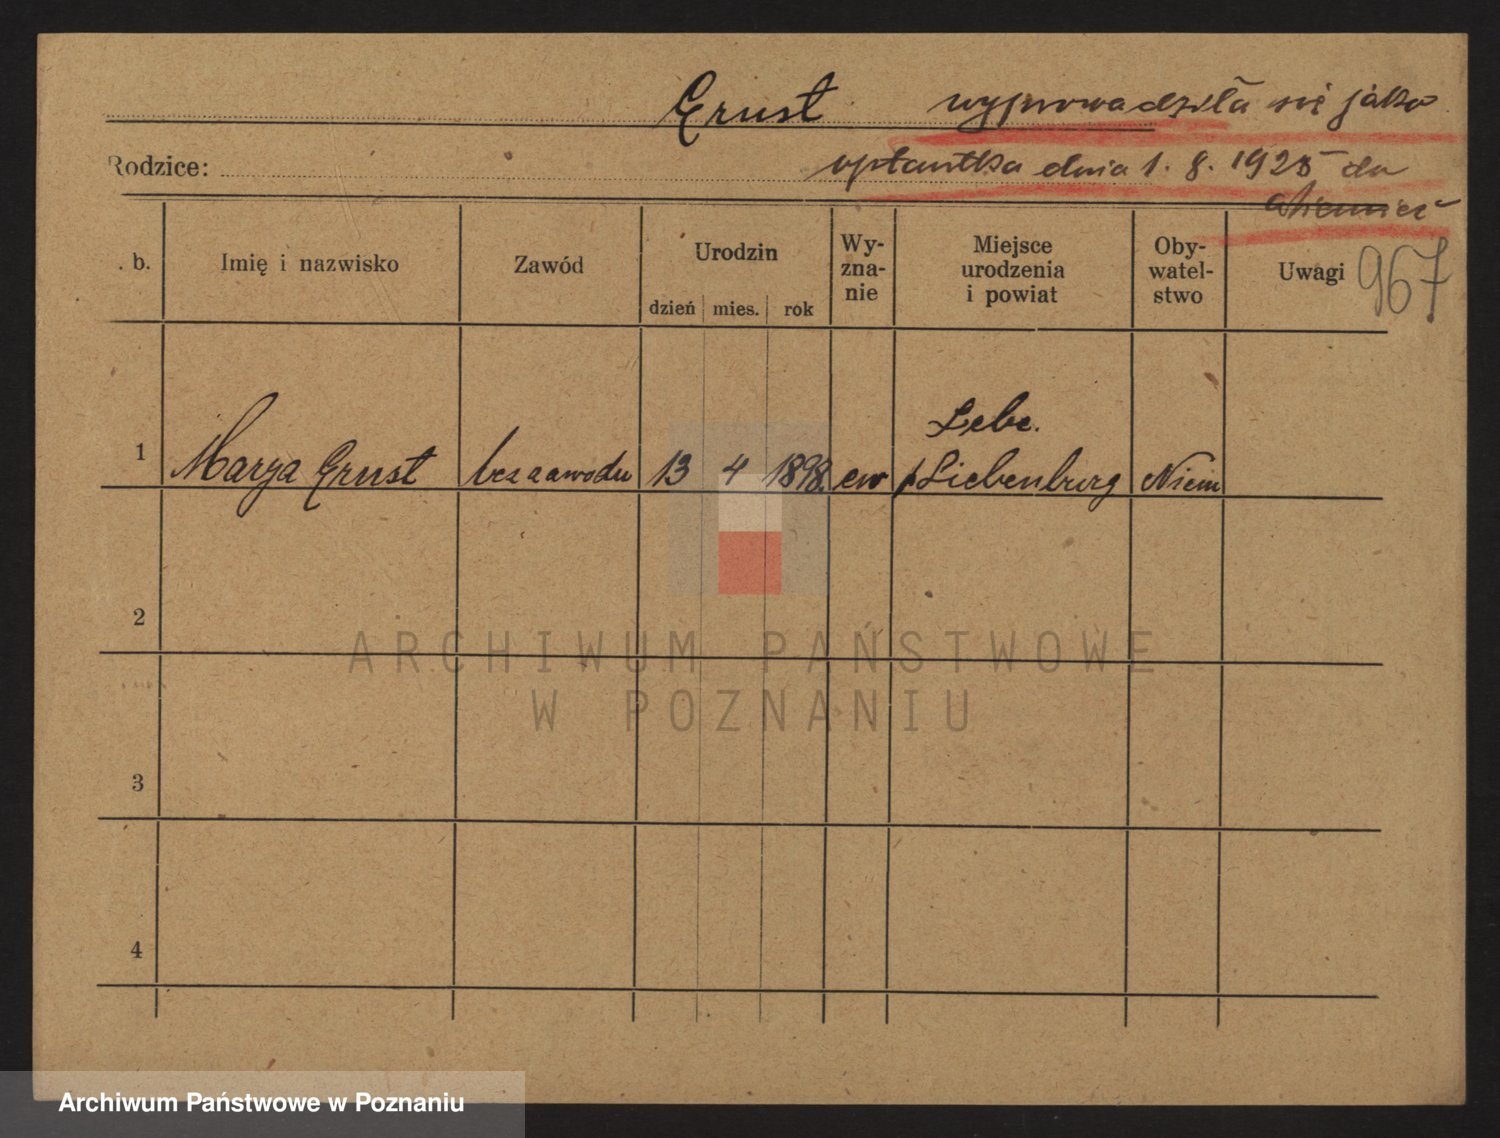 Ernst wyprowadziła się jako
Rodzice: optantka dnia 1. 8. 1925 do
Niemiec
. b. Imię i nazwisko Zawód Urodzin dzień mies. rok Wy-zna-nie Miejsce urodzenia i powiat Oby-watel-stwo Uwagi 967
Lebe.
1 Marya Ernst bez zawodu 13 4 1898. ew p Liebenburg Niem
2
ARCHIWUM PAŃSTWOWE
W POZNANIU
3
4
Archiwum Państwowe w Poznaniu